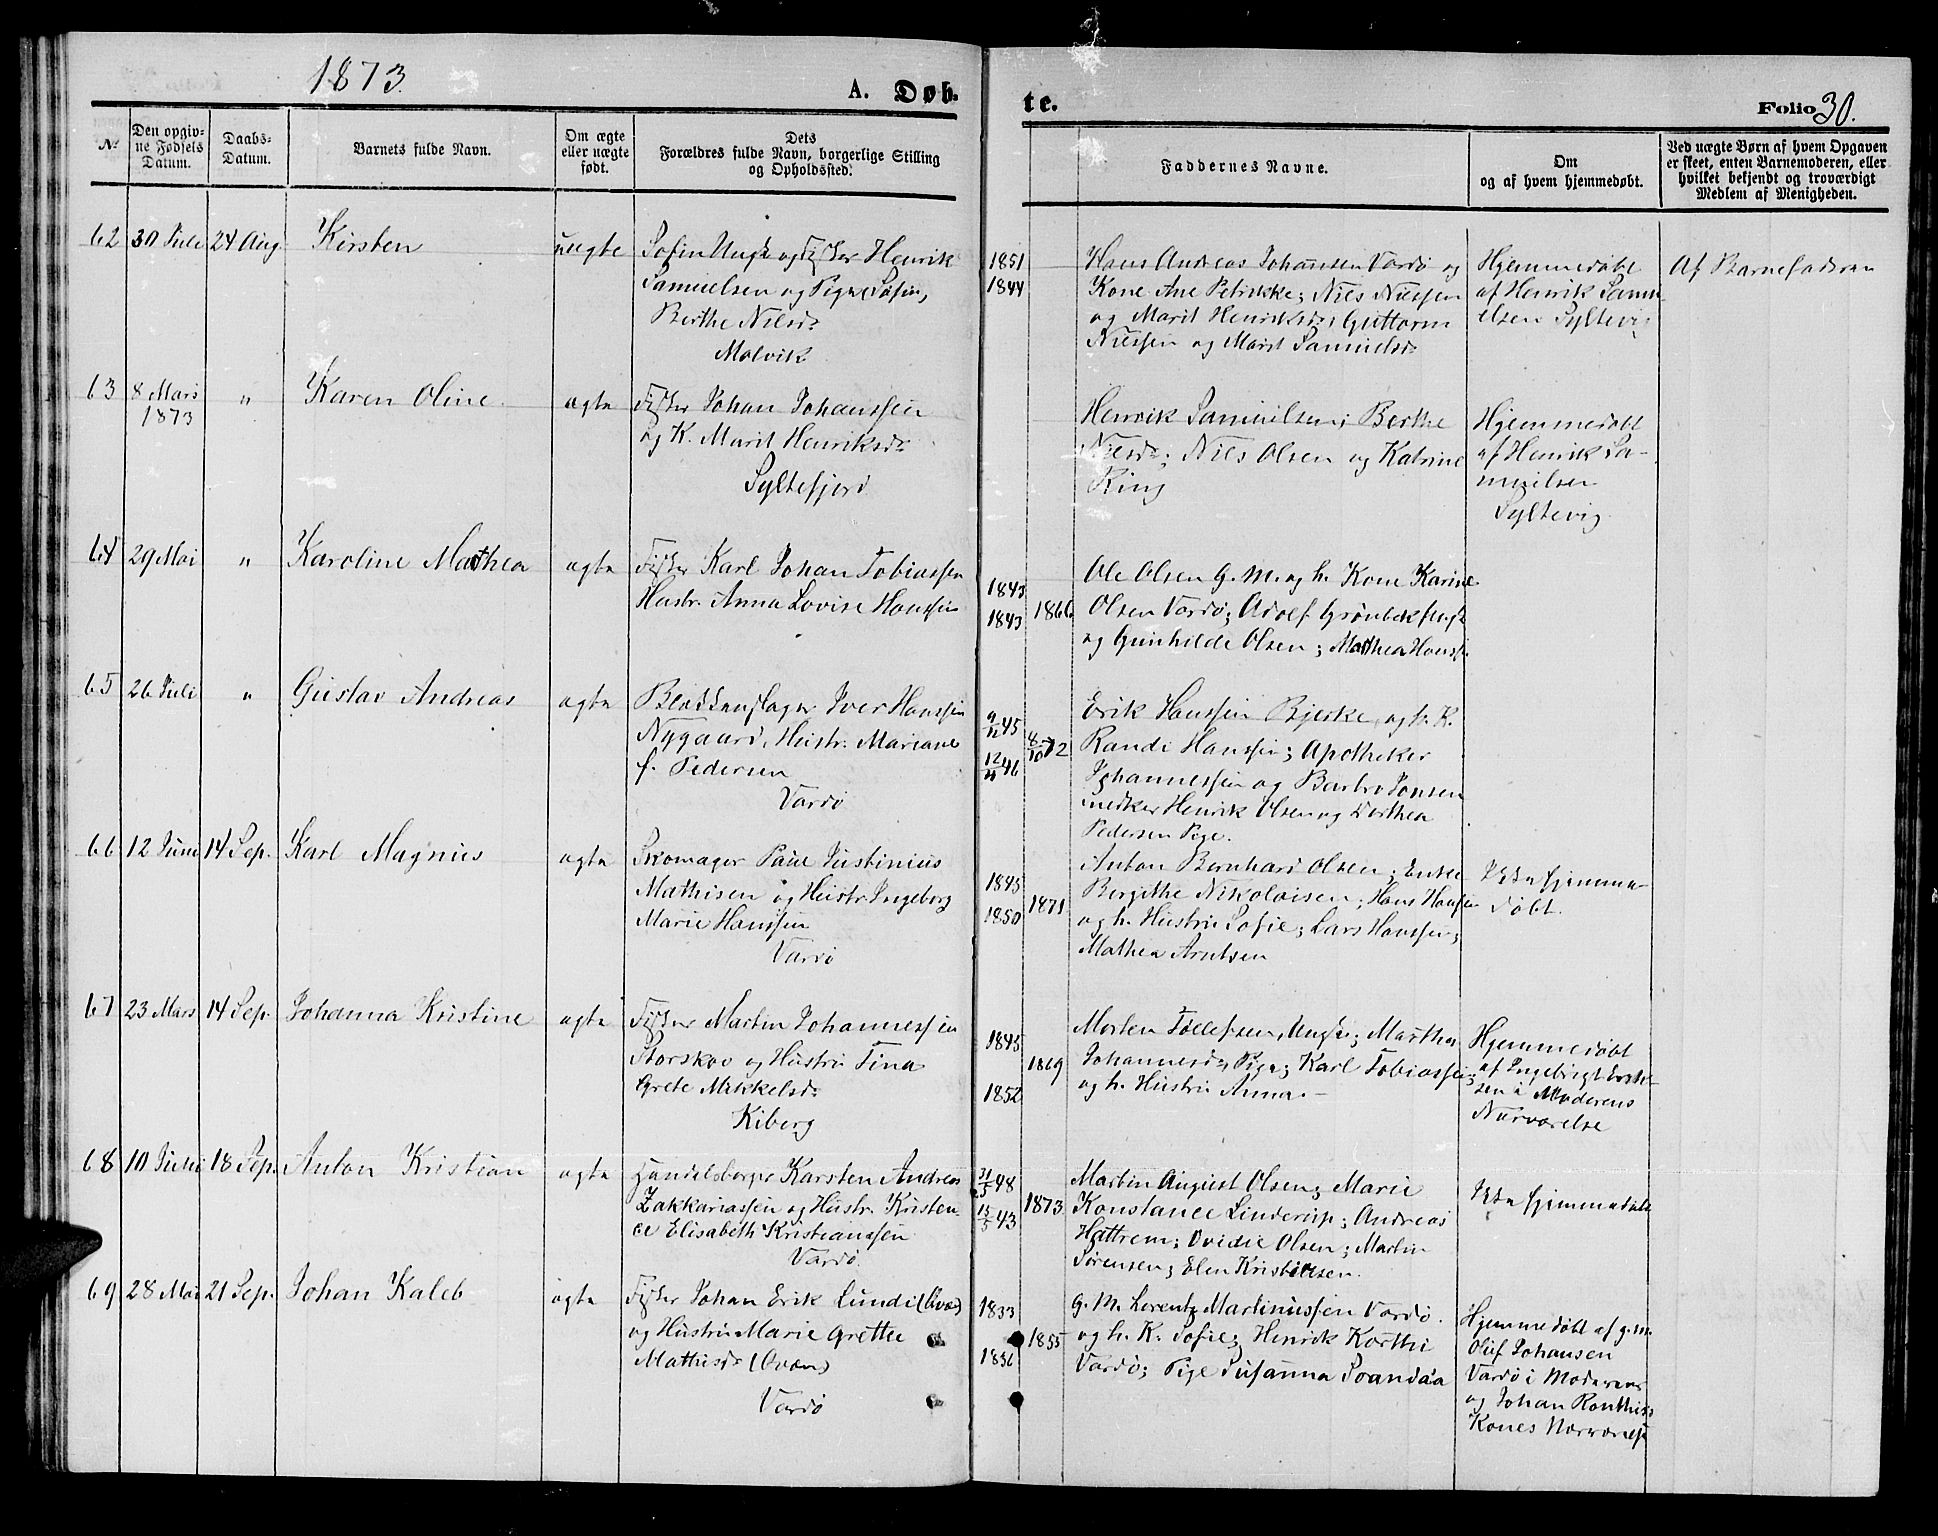 1873
A. Døb-
te.
Folio 30.
No
Den opgiv-
ne Fødsels
Datum.
Daabs-
Datum.
Barnets fulde Navn.
Om ægte
eller uægte
født.
Dets
Forældres fulde Navn, borgerlige Stilling
og Opholdssted.
Faddernes Navne.
Om
og af hvem hjemmedøbt.
Ved uægte Børn af hvem Opgaven
er skeet, enten Barnemoderen, eller
hvilket bekjendt og troværdigt
Medlem af Menigheden.
62 30 Juli 24 Aug. Kirsten uægte
og Fisker Henrik
Samuelsen og Pige
Berthe Nilsd.
Molvik
1851
1844
Hans Andreas Johansen Vardø og
Kone Ane Petrikke; Nils Nilssen
og Marit Henriksd., Guttorm
Nilssen og Marit Samuelsd.
Hjemmedøbt
af Henrik Samu-
elsen Syltevig
Af Barnefaderen
63 8 Mars
1873
" Karen Oline ægte
Fisker Johan Johanssen
og K. Marit Henriksd.
Syltefjord
Henrik Samuelsen; Berthe
Nilsd.; Nils Olsen og Katrine
Ring
Hjemmedøbt
af Henrik Sa-
muelsen
Syltevig
64 29 Mai " Karoline Mathea ægte
Fisker Karl Johan Tobiassen
Hustr. Anna Lovise Hanssen
1843
1843
1866
Ole Olsen G. M. og h. Kone Karine
Olsen Vardø; Adolf Grönbek
og Gunhilde Olsen; Mathea Hanss.
65 26 Juli " Gustav Andreas ægte
Blikkenslager Iver Hanssen
Nygaard, Hustr. Mariane
f. Pedersen
Vardø
9/11 45
12/4 46
8/10 72
Erik Hanssen Bjerke, og h. K.
Randi Hanssen; Apotheker
Johannessen og Barbro Jonsen
Henrik Olsen og Dorthea
Pedersen Pige.
66 12 Juni 14 Sep. Karl Magnus ægte
Skomager Paul Justinius
Mathisen og Hustr. Ingeborg
Marie Hanssen
Vardø
1845
1850
1871
Anton Bernhard Olsen; Enke
Bergithe Nikolaisen; Hans Hansen
og h. Hustru Sofie; Lars Hanssen;
Mathea Arntsen
Ikke hjemme-
døbt.
67 23 Mars 14 Sep. Johanna Kristine ægte
Fisker Martin Johannessen
Storskov og Hustru Tina
Grete Mikkelsd.
Kiberg
1845
1852
1869
Morten Tollefsen, Ungk.; Marthe
Johannesd., Pige; Karl Tobiassen;
og h. Hustru Anna.
Hjemmedøbt
af Ingebrigt Erik-
sen i Moderens
Nærværelse
68 10 Juli 18 Sep. Anton Kristian ægte
Handelsborger Karsten Andreas
Zakkariassen og Hustr. Kristen-
ce Elisabeth Kristianssen
Vardø.
31/5 48
15/5 43
1873
Martin August Olsen; Marie
Konstance Linderup; Andreas
Hattrem; Ovidie Olsen; Martin
Sørensen; Elen Kristensen.
Ikke hjemmedøbt
69 28 Mai 21 Sep. Johan Kaleb ægte
Fisker Johan Erik Lundi (Qvæn)
og Hustru Marie Grethe
Mathisd. (Qvæn)
Vardø
1833
1836
1855
G. M. Lorentz Martinussen Vardø.
og h. K. Sofie; Henrik Korthi
Vardø; Pige Susanna Soandaa
Hjemmedøbt af g. m.
Oluf Johansen
Vardø i Moderens
og Johan Ronthis
Kones Nærværelse